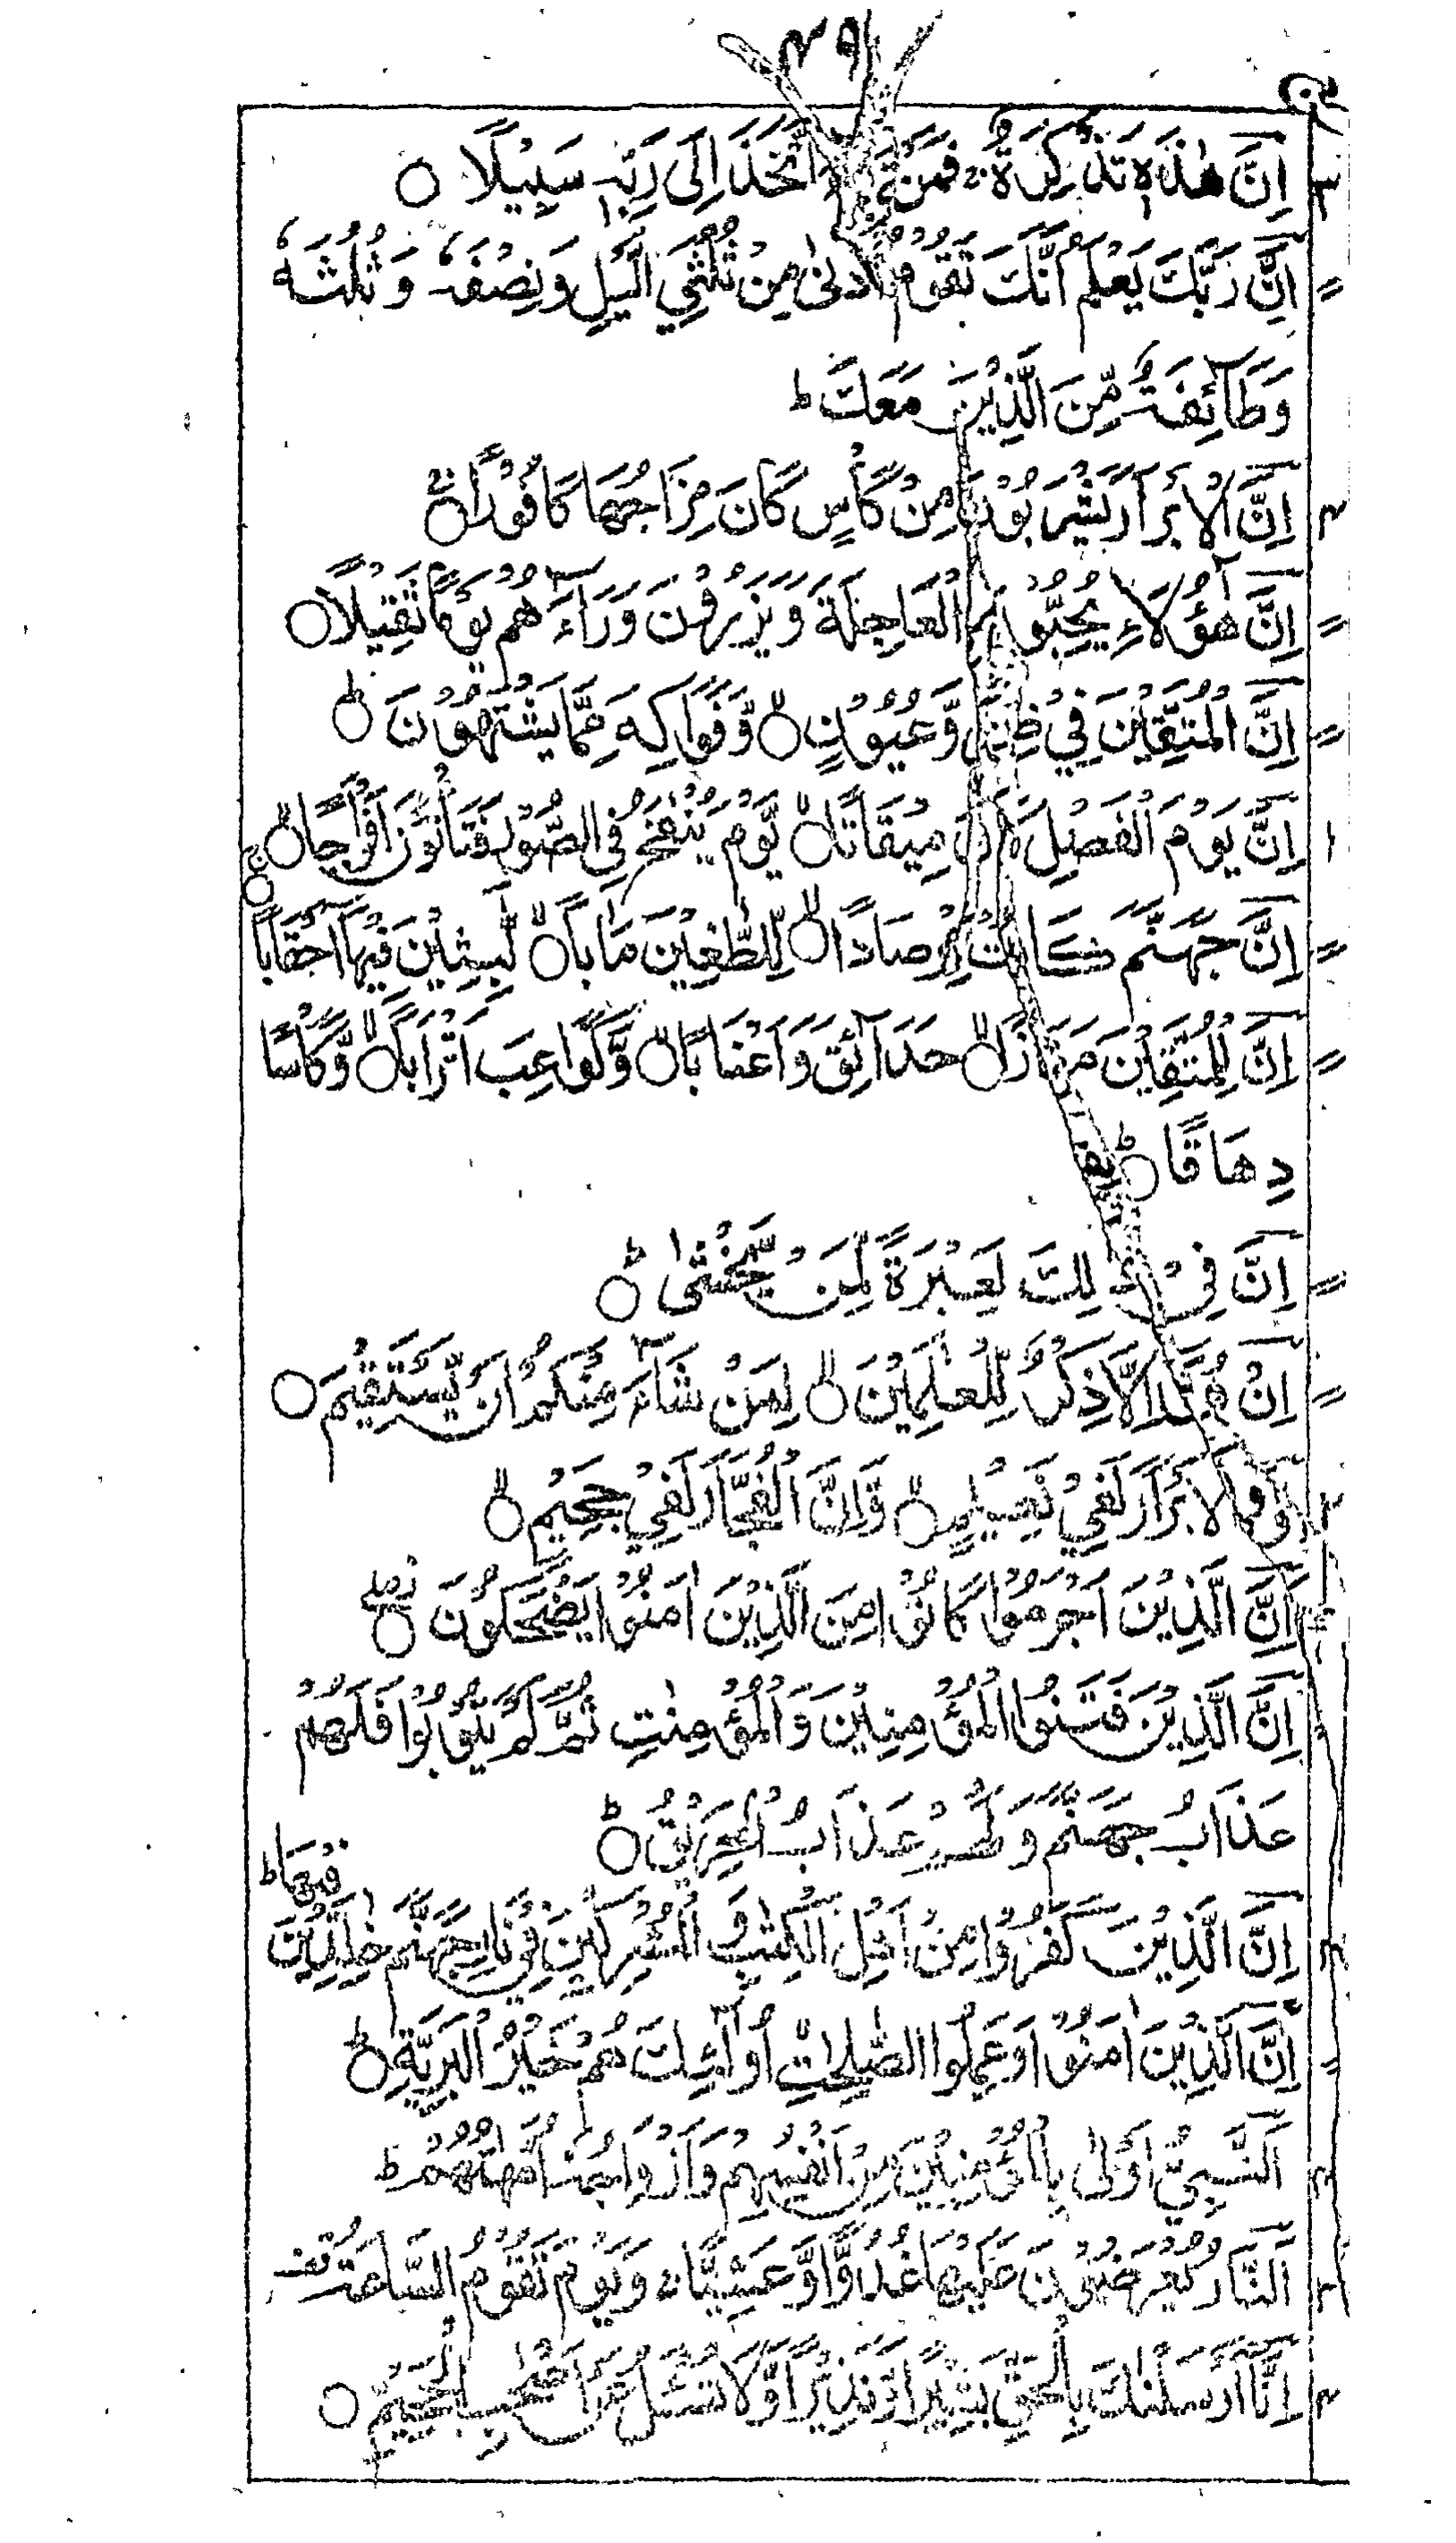 ۴۹
اِنَّ هٰذِهٖ تَذْكِرَةٌ ۚ فَمَنْ اتَّخَذَ اِلٰى رَبِّهٖ سَبِيْلًا ○
اِنَّ رَبَّكَ يَعْلَمُ اَنَّكَ تَقُوْمُ اَدْنٰى مِنْ ثُلُثَىِ الَّيْلِ وَنِصْفَهٗ وَثُلُثَهٗ
وَطَآئِفَةٌ مِّنَ الَّذِيْنَ مَعَكَ ؕ
اِنَّ الْاَبْرَارَ يَشْرَبُوْنَ مِنْ كَاْسٍ كَانَ مِزَاجُهَا كَافُوْرًا ۚ○
اِنَّ هٰٓؤُلَآءِ يُحِبُّوْنَ الْعَاجِلَةَ وَيَذَرُوْنَ وَرَآءَهُمْ يَوْمًا ثَقِيْلًا ○
اِنَّ الْمُتَّقِيْنَ فِيْ ظِلٰلٍ وَّعُيُوْنٍ ۙ○ وَّفَوَاكِهَ مِمَّا يَشْتَهُوْنَ ؕ○
اِنَّ يَوْمَ الْفَصْلِ كَانَ مِيْقَاتًا ۙ○ يَّوْمَ يُنْفَخُ فِى الصُّوْرِ فَتَاْتُوْنَ اَفْوَاجًا ۙ○
اِنَّ جَهَنَّمَ كَانَتْ مِرْصَادًا ۙ○ لِّلطّٰغِيْنَ مَاٰبًا ۙ○ لّٰبِثِيْنَ فِيْهَآ اَحْقَابًا ○ۚ
اِنَّ لِلْمُتَّقِيْنَ مَفَازًا ۙ○ حَدَآئِقَ وَاَعْنَابًا ۙ○ وَّكَوَاعِبَ اَتْرَابًا ۙ○ وَّكَاْسًا
دِهَاقًا ؕ○
اِنَّ فِيْ ذٰلِكَ لَعِبْرَةً لِّمَنْ يَّخْشٰى ؕ○
اِنْ هُوَ اِلَّا ذِكْرٌ لِّلْعٰلَمِيْنَ ۙ○ لِمَنْ شَآءَ مِنْكُمْ اَنْ يَّسْتَقِيْمَ ○
الْاَبْرَارَ لَفِيْ نَعِيْمٍ ۙ○ وَّاِنَّ الْفُجَّارَ لَفِيْ جَحِيْمٍ ۙ○
اِنَّ الَّذِيْنَ اَجْرَمُوْا كَانُوْا مِنَ الَّذِيْنَ اٰمَنُوْا يَضْحَكُوْنَ ○
اِنَّ الَّذِيْنَ فَتَنُوا الْمُؤْمِنِيْنَ وَالْمُؤْمِنٰتِ ثُمَّ لَمْ يَتُوْبُوْا فَلَهُمْ
عَذَابُ جَهَنَّمَ وَلَهُمْ عَذَابُ الْحَرِيْقِ ؕ○
اِنَّ الَّذِيْنَ كَفَرُوْا مِنْ اَهْلِ الْكِتٰبِ وَالْمُشْرِكِيْنَ فِيْ نَارِ جَهَنَّمَ خٰلِدِيْنَ فِيْهَا ؕ
اِنَّ الَّذِيْنَ اٰمَنُوْا وَعَمِلُوا الصّٰلِحٰتِ اُولٰٓئِكَ هُمْ خَيْرُ الْبَرِيَّةِ ؕ○
اَلنَّبِيُّ اَوْلٰى بِالْمُؤْمِنِيْنَ مِنْ اَنْفُسِهِمْ وَاَزْوَاجُهٗٓ اُمَّهٰتُهُمْ ؕ
اَلنَّارُ يُعْرَضُوْنَ عَلَيْهَا غُدُوًّا وَّعَشِيًّا ۚ وَيَوْمَ تَقُوْمُ السَّاعَةُ
اِنَّآ اَرْسَلْنٰكَ بِالْحَقِّ بَشِيْرًا وَّنَذِيْرًا وَّلَا تُسْئَلُ عَنْ اَصْحٰبِ الْجَحِيْمِ ○